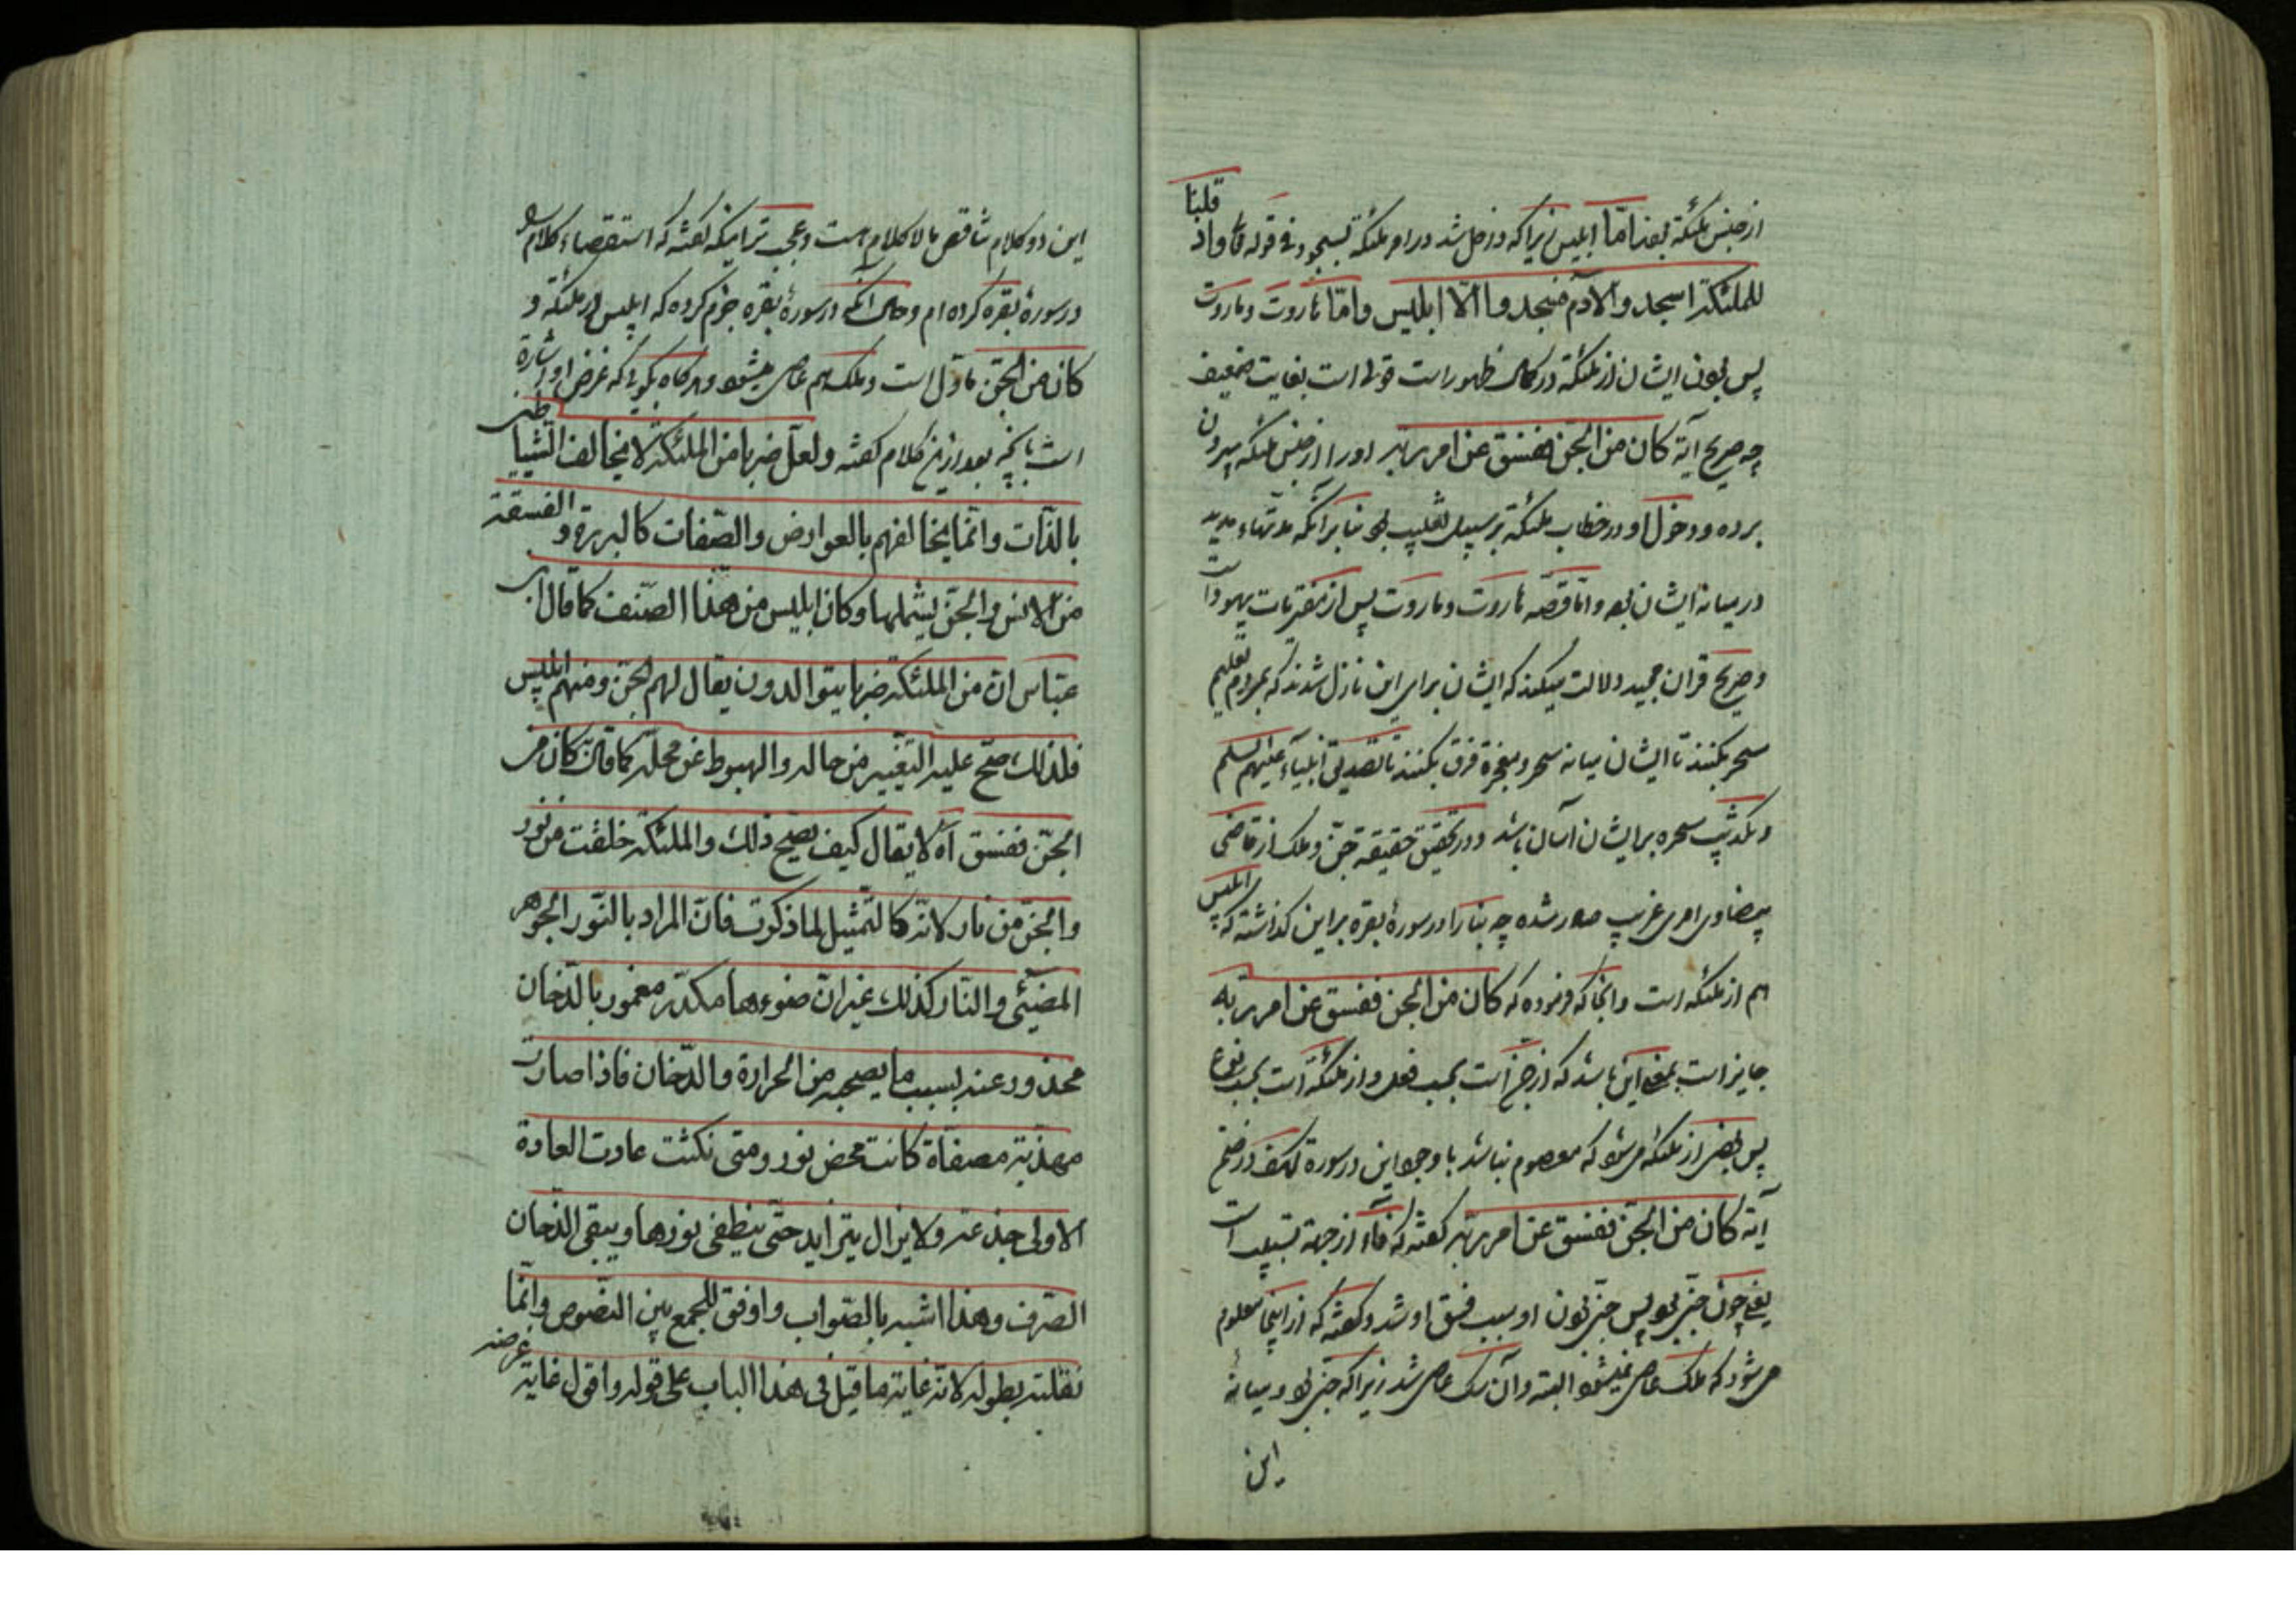 از جنس ملئکه بودند اما ابلیس زیرا که داخل شد در امر ملئکه بسجود فی قوله تعا واذ قلنا
للملئکة اسجدوا لادم فسجدوا الا ابلیس واما هاروت وماروت
پس بودن ایشان از ملئکه در کمال ظهور است قولی است بغایت ضعیف
چه صریح آیة کان من الجن ففسق عن امر ربه اورا از جنس ملئکه بیرون
برده ودخول او در خطاب ملئکة بر سبیل تغلیب بود بنا بر آنکه مدتهاء مدید
در میانه ایشان بود واما قصه هاروت وماروت پس از مفتریات یهود است
وصریح قران مجید دلالت میکند که ایشان برای این نازل شدند که بمردم تعلیم
سحر بکنند تا ایشان میانه سحر ومعجزة فرق بکنند تا تصدیق انبیاء علیهم السلم
وتکذیب سحره بر ایشان آسان باشد ودر تحقیق حقیقة جن وملک از قاضی
بیضاوی امری غریب صادر شده چه بنا را در سورهٔ بقره بر این گذاشته که ابلیس
هم از ملئکه است وانجا که فرموده که کان من الجن ففسق عن امر ربه
جایز است بمعنی این باشد که از جن است بحسب فعل واز ملئکة است بحسب نوع
پس بعضی از ملئکه میشود که معصوم نباشد با وجود این در سورة کهف در ضمن
آیة کان من الجن ففسق عن امر ربه گفته که فاء از جهة تسبیب است
یعنی چون جنی بود پس جنی بودن او سبب فسق او شد وگفته که از اینجا معلوم
می شود که ملک عاصی نمیشود البته وآن سک عاصی شد زیرا که جنی بود ومیانه
این
این دو کلام تناقص بالا کلام است وعجب تر اینکه گفته که استقصاء کلام
در سورهٔ بقره کرده ام وحال آنکه در سورهٔ بقره جزم کرده که ابلیس از ملئکه و
کان من الجن مأول است وملک هم عاصی میشود وهرگاه بگویی که غرض او اشارة
است بانچه بعد ازین کلام گفته ولعل ضربا من الملئکة لا یخالف الشیاطین
بالذات وانما یخالفهم بالعوارض والصفات کالبررة والفسقة
من الانس والجن یشملها وکان ابلیس من هذا الصنف کما قال ابن
عباس ان من الملئکة ضربا یتوالدون یقال لهم الجن ومنهم ابلیس
فلذلک صح علیه التغییر من حاله والهبوط عن محله کما قال کان من
الجن ففسق آه لا یقال کیف یصح ذلک والملئکة خلقت من نور
والجن من نار لانه کالتمثیل لما ذکرت فان المراد بالنور الجوهر
المضیئی والنار کذلک غیر ان ضوءها مکدر مغمور بالدخان
محذور عنه بسبب ما یصحبه من الحرارة والدخان فاذا صارت
مهذبة مصفاة کانت محض نور ومتی نکثت عادت العادة
الاولی جذعة ولا یزال یتزاید حتی ینطفی نورها ویبقی الدخان
الصرف وهذا اشبه بالصواب واوفق للجمع بین النصوص وانما
نقلته بطوله لانه غایة ما قیل فی هذا الباب علی قوله واقول غایة غرضه